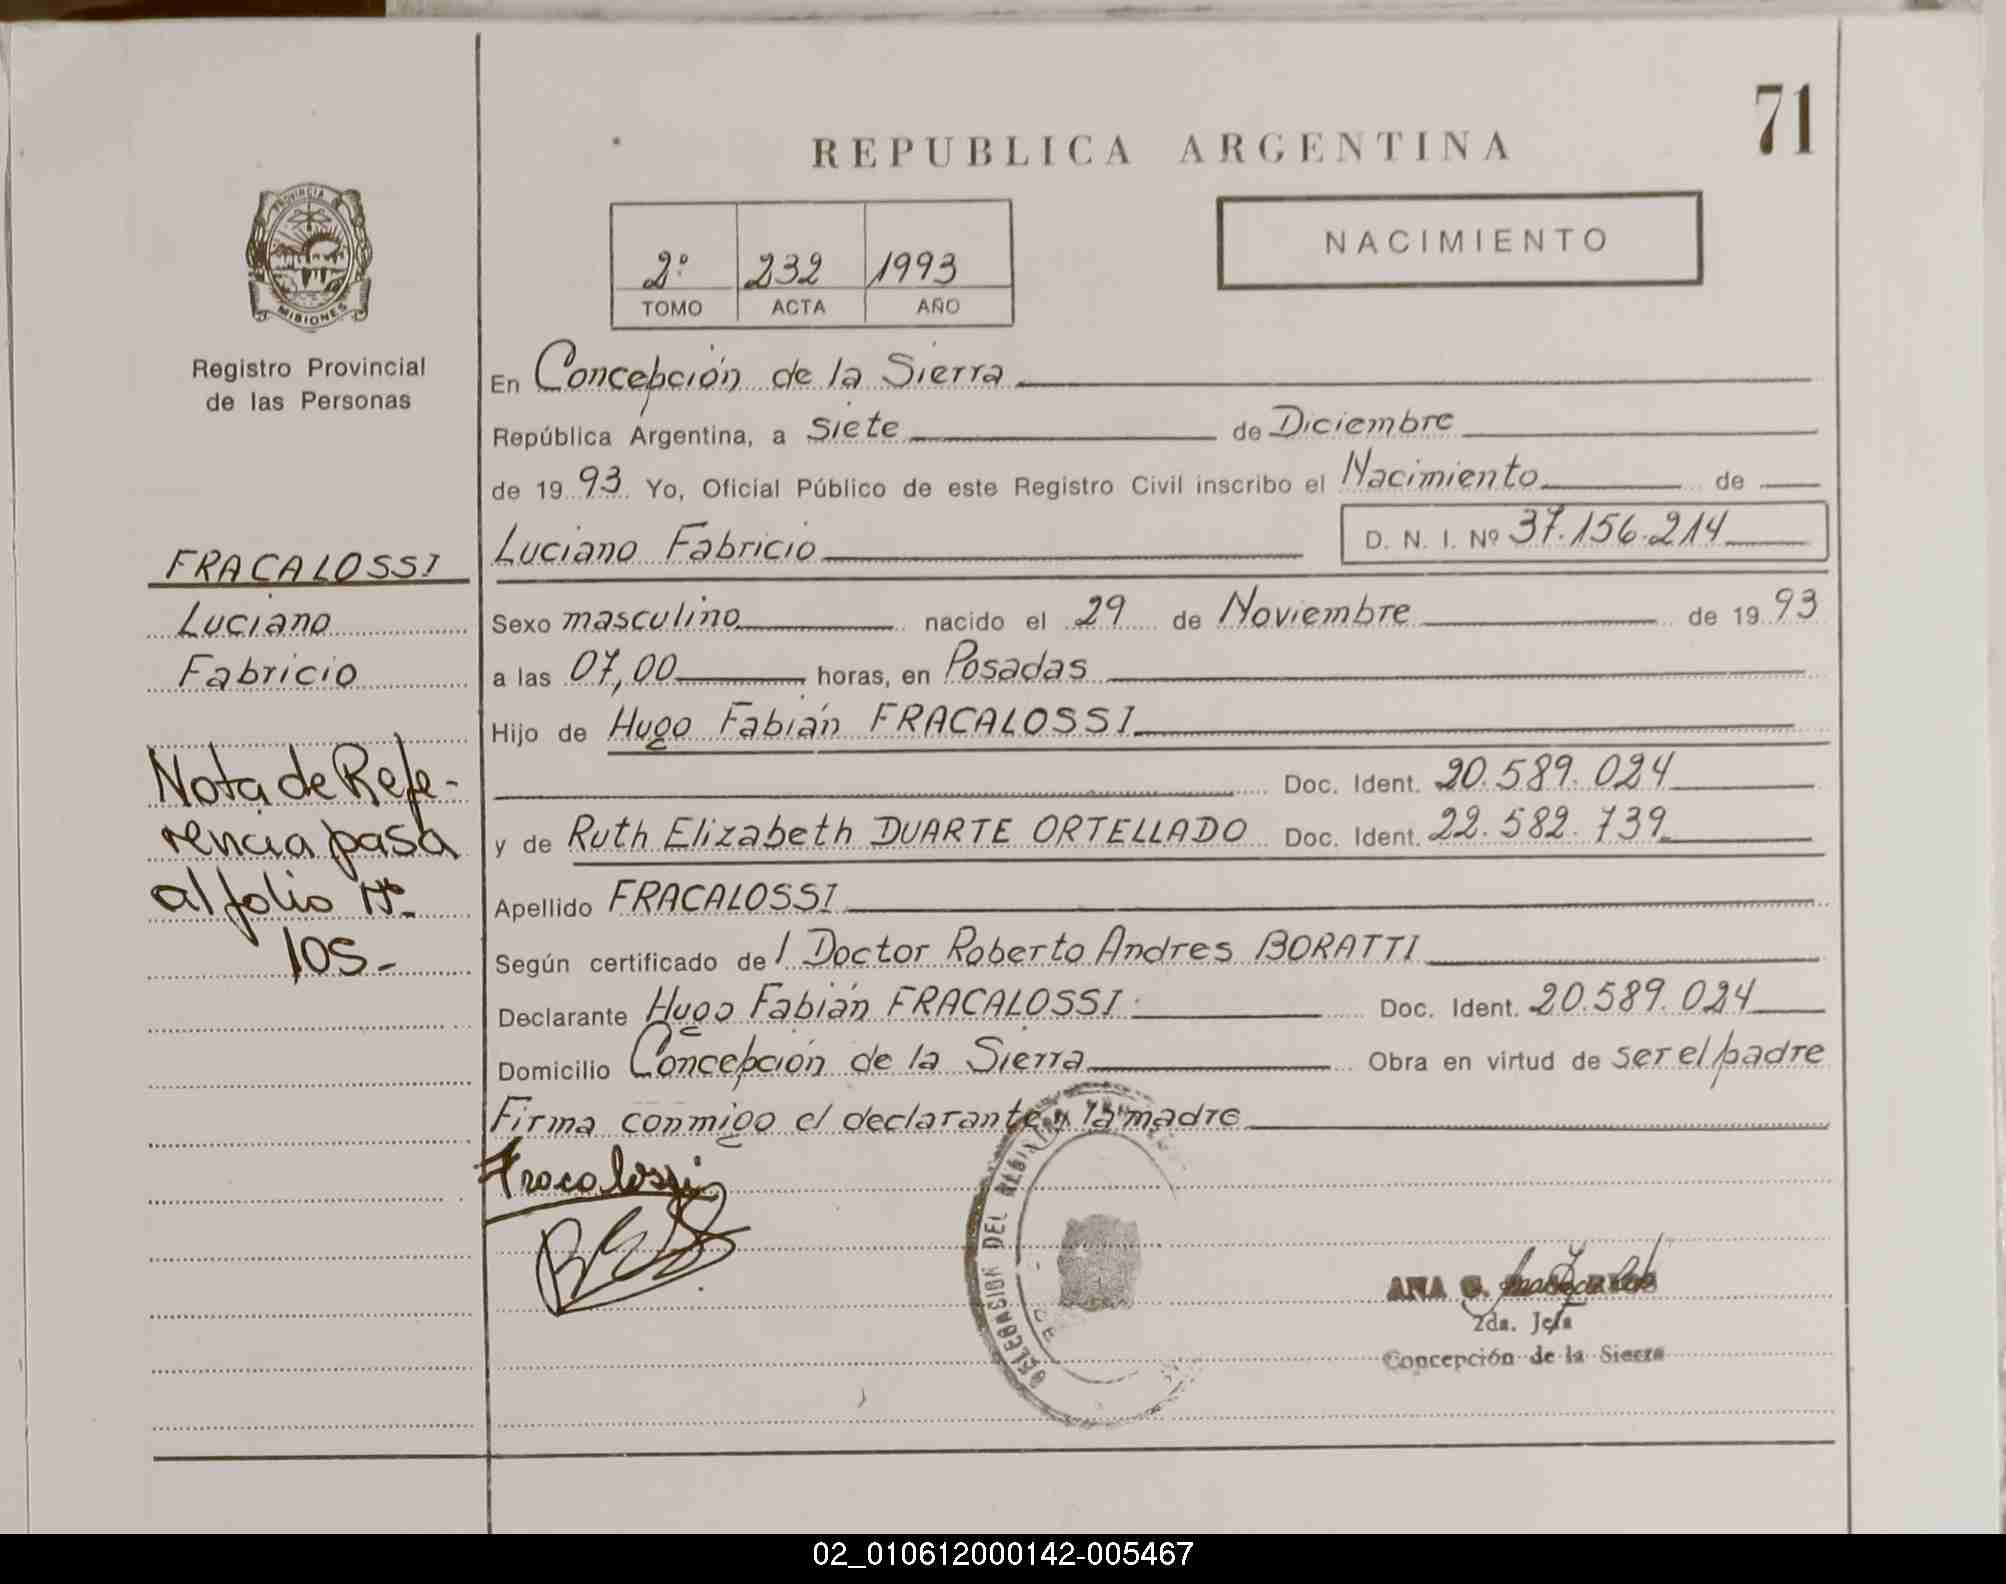 71
REPUBLICA ARGENTINA
PROVINCIA
MISIONES
Registro Provincial
de las Personas
2º 232 1993
TOMO ACTA AÑO
NACIMIENTO
En Concepción de la Sierra
República Argentina, a siete de Diciembre
de 1993. Yo, Oficial Público de este Registro Civil inscribo el Nacimiento de
Luciano Fabricio D. N. I. Nº 37.156.214
Sexo masculino nacido el 29 de Noviembre de 1993
a las 07,00 horas, en Posadas
Hijo de Hugo Fabián FRACALOSSI
Doc. Ident. 20.589.024
y de Ruth Elizabeth DUARTE ORTELLADO Doc. Ident. 22.582.739
Apellido FRACALOSSI
Según certificado del Doctor Roberto Andres BORATTI
Declarante Hugo Fabián FRACALOSSI Doc. Ident. 20.589.024
Domicilio Concepción de la Sierra Obra en virtud de ser el padre
Firma conmigo el declarante y la madre
FRACALOSSI
Luciano
Fabricio
Nota de Refe-
rencia pasa
al folio Nº
105-
Fracalossi
DELEGACION DEL
DE
ANA
2da. Jefa
Concepción de la Sierra
02_010612000142-005467